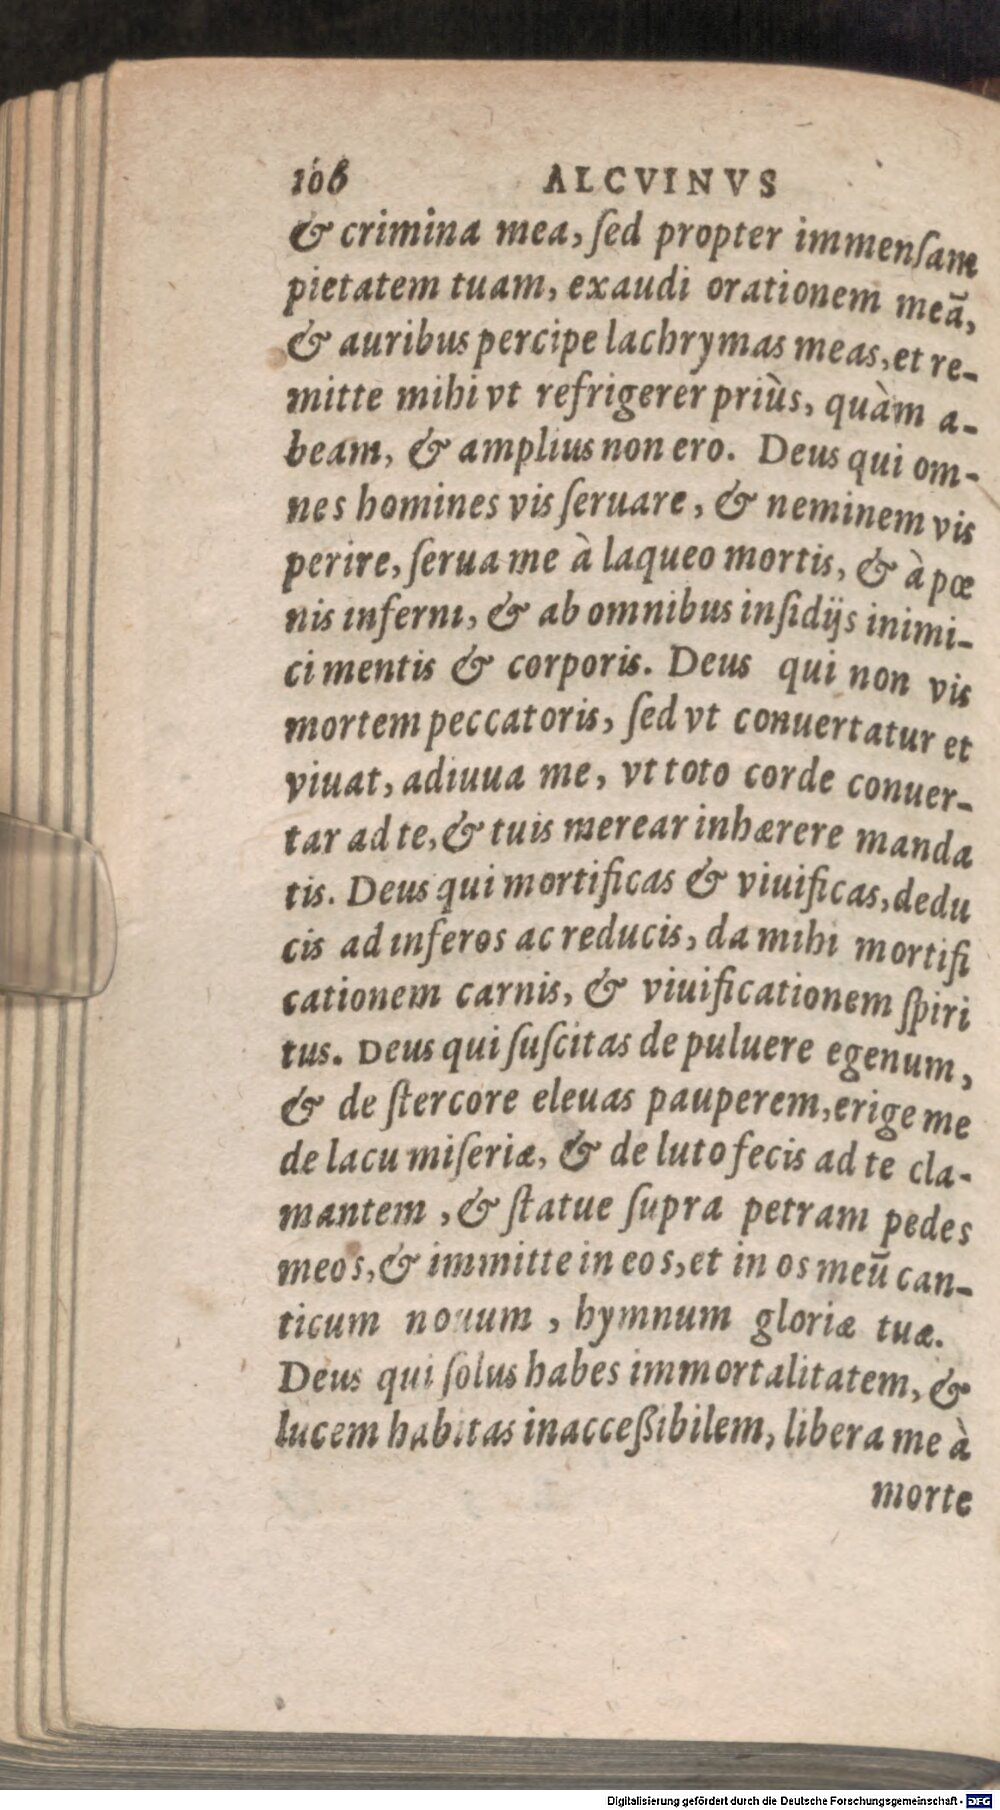 106 ALCVINVS
& crimina mea, ſed propter immenſam
pietatem tuam, exaudi orationem meā,
& auribus percipe lachrymas meas, et re-
mitte mihi vt refrigerer priùs, quàm a-
beam, & amplius non ero. Deus qui om-
nes homines vis ſeruare, & neminem vis
perire, ſerua me à laqueo mortis, & à pœ
nis inferni, & ab omnibus inſidijs inimi-
ci mentis & corporis. Deus qui non vis
mortem peccatoris, ſed vt conuertatur et
viuat, adiuua me, vt toto corde conuer-
tar ad te, & tuis merear inhærere manda
tis. Deus qui mortificas & viuificas, dedu
cis ad inferos ac reducis, da mihi mortifi
cationem carnis, & viuificationem ſpiri
tus. Deus qui ſuſcitas de puluere egenum,
& de ſtercore eleuas pauperem, erige me
de lacu miſeriæ, & de luto fecis ad te cla-
mantem, & ſtatue ſupra petram pedes
meos, & immitte in eos, et in os meū can-
ticum nouum, hymnum gloriæ tuæ.
Deus qui ſolus habes immortalitatem, &
lucem habitas inacceßibilem, libera me à
morte
Digitalisierung gefördert durch die Deutsche Forschungsgemeinschaft - DFG